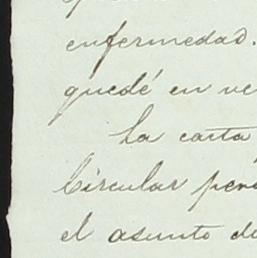 enfermedad.
quedé en ve
La carta
Circular per
el asunto de